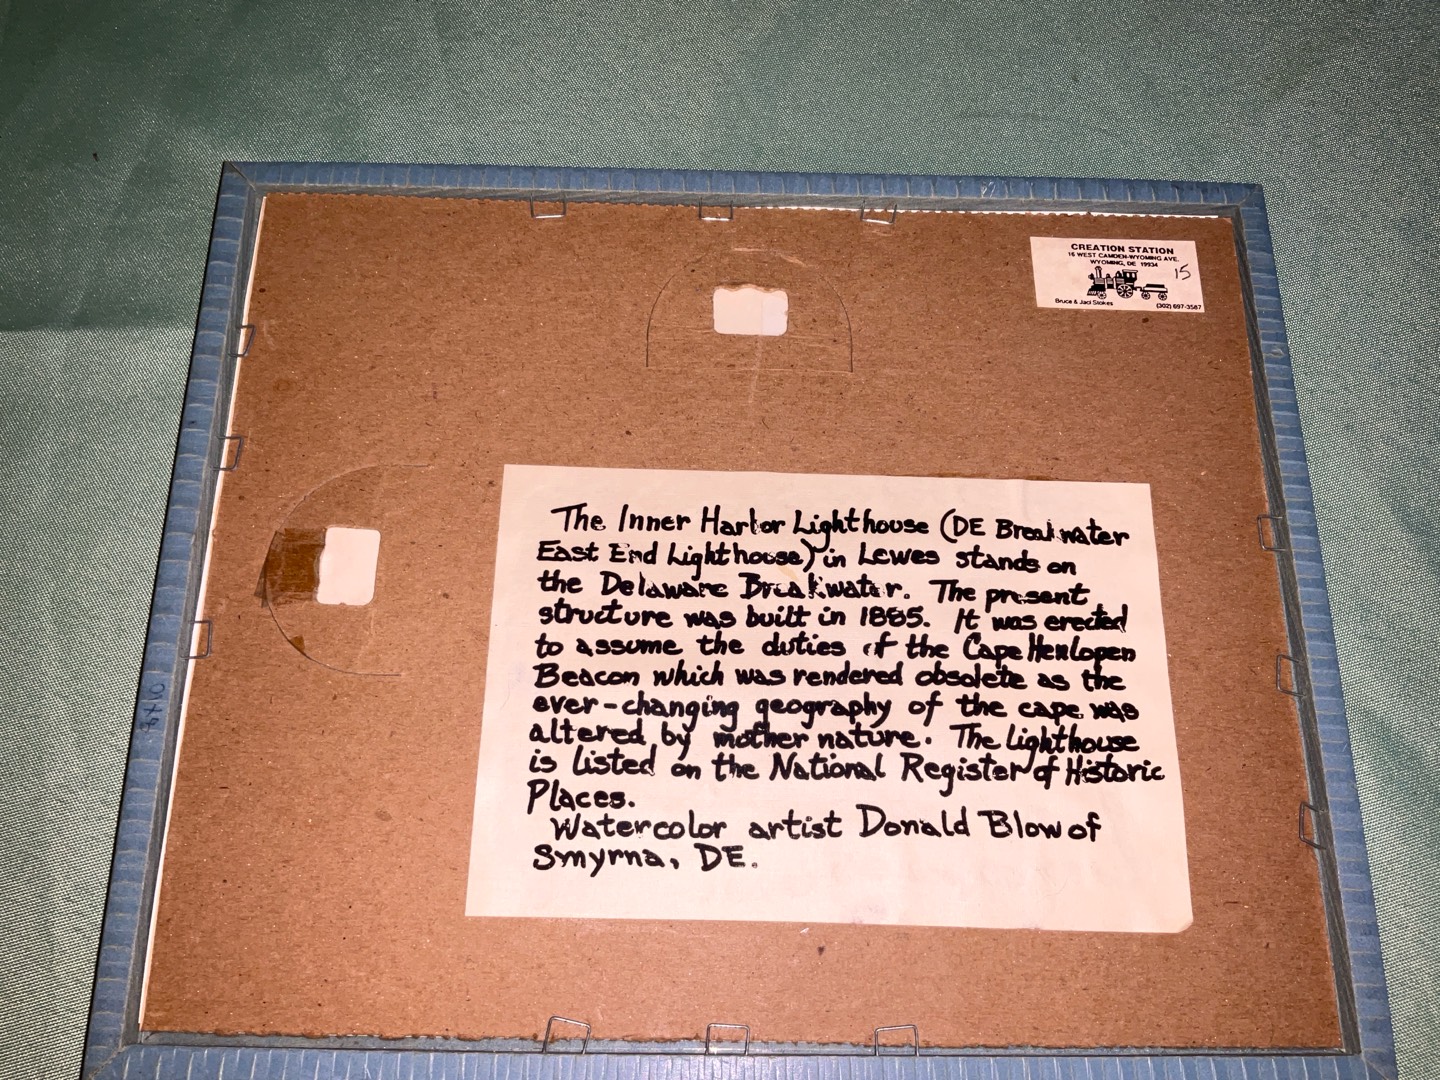 CREATION STATION
16 WEST CAMDEN-WYOMING AVE.
WYOMING, DE 19934
15
Bruce & Jaci Stokes (302) 697-3587
The Inner Harbor Lighthouse (DE Breakwater
East End Lighthouse) in Lewes stands on
the Delaware Breakwater. The present
structure was built in 1885. It was erected
to assume the duties of the Cape Henlopen
Beacon which was rendered obsolete as the
ever-changing geography of the cape was
altered by mother nature. The lighthouse
is listed on the National Register of Historic
Places.
Watercolor artist Donald Blow of
Smyrna, DE.